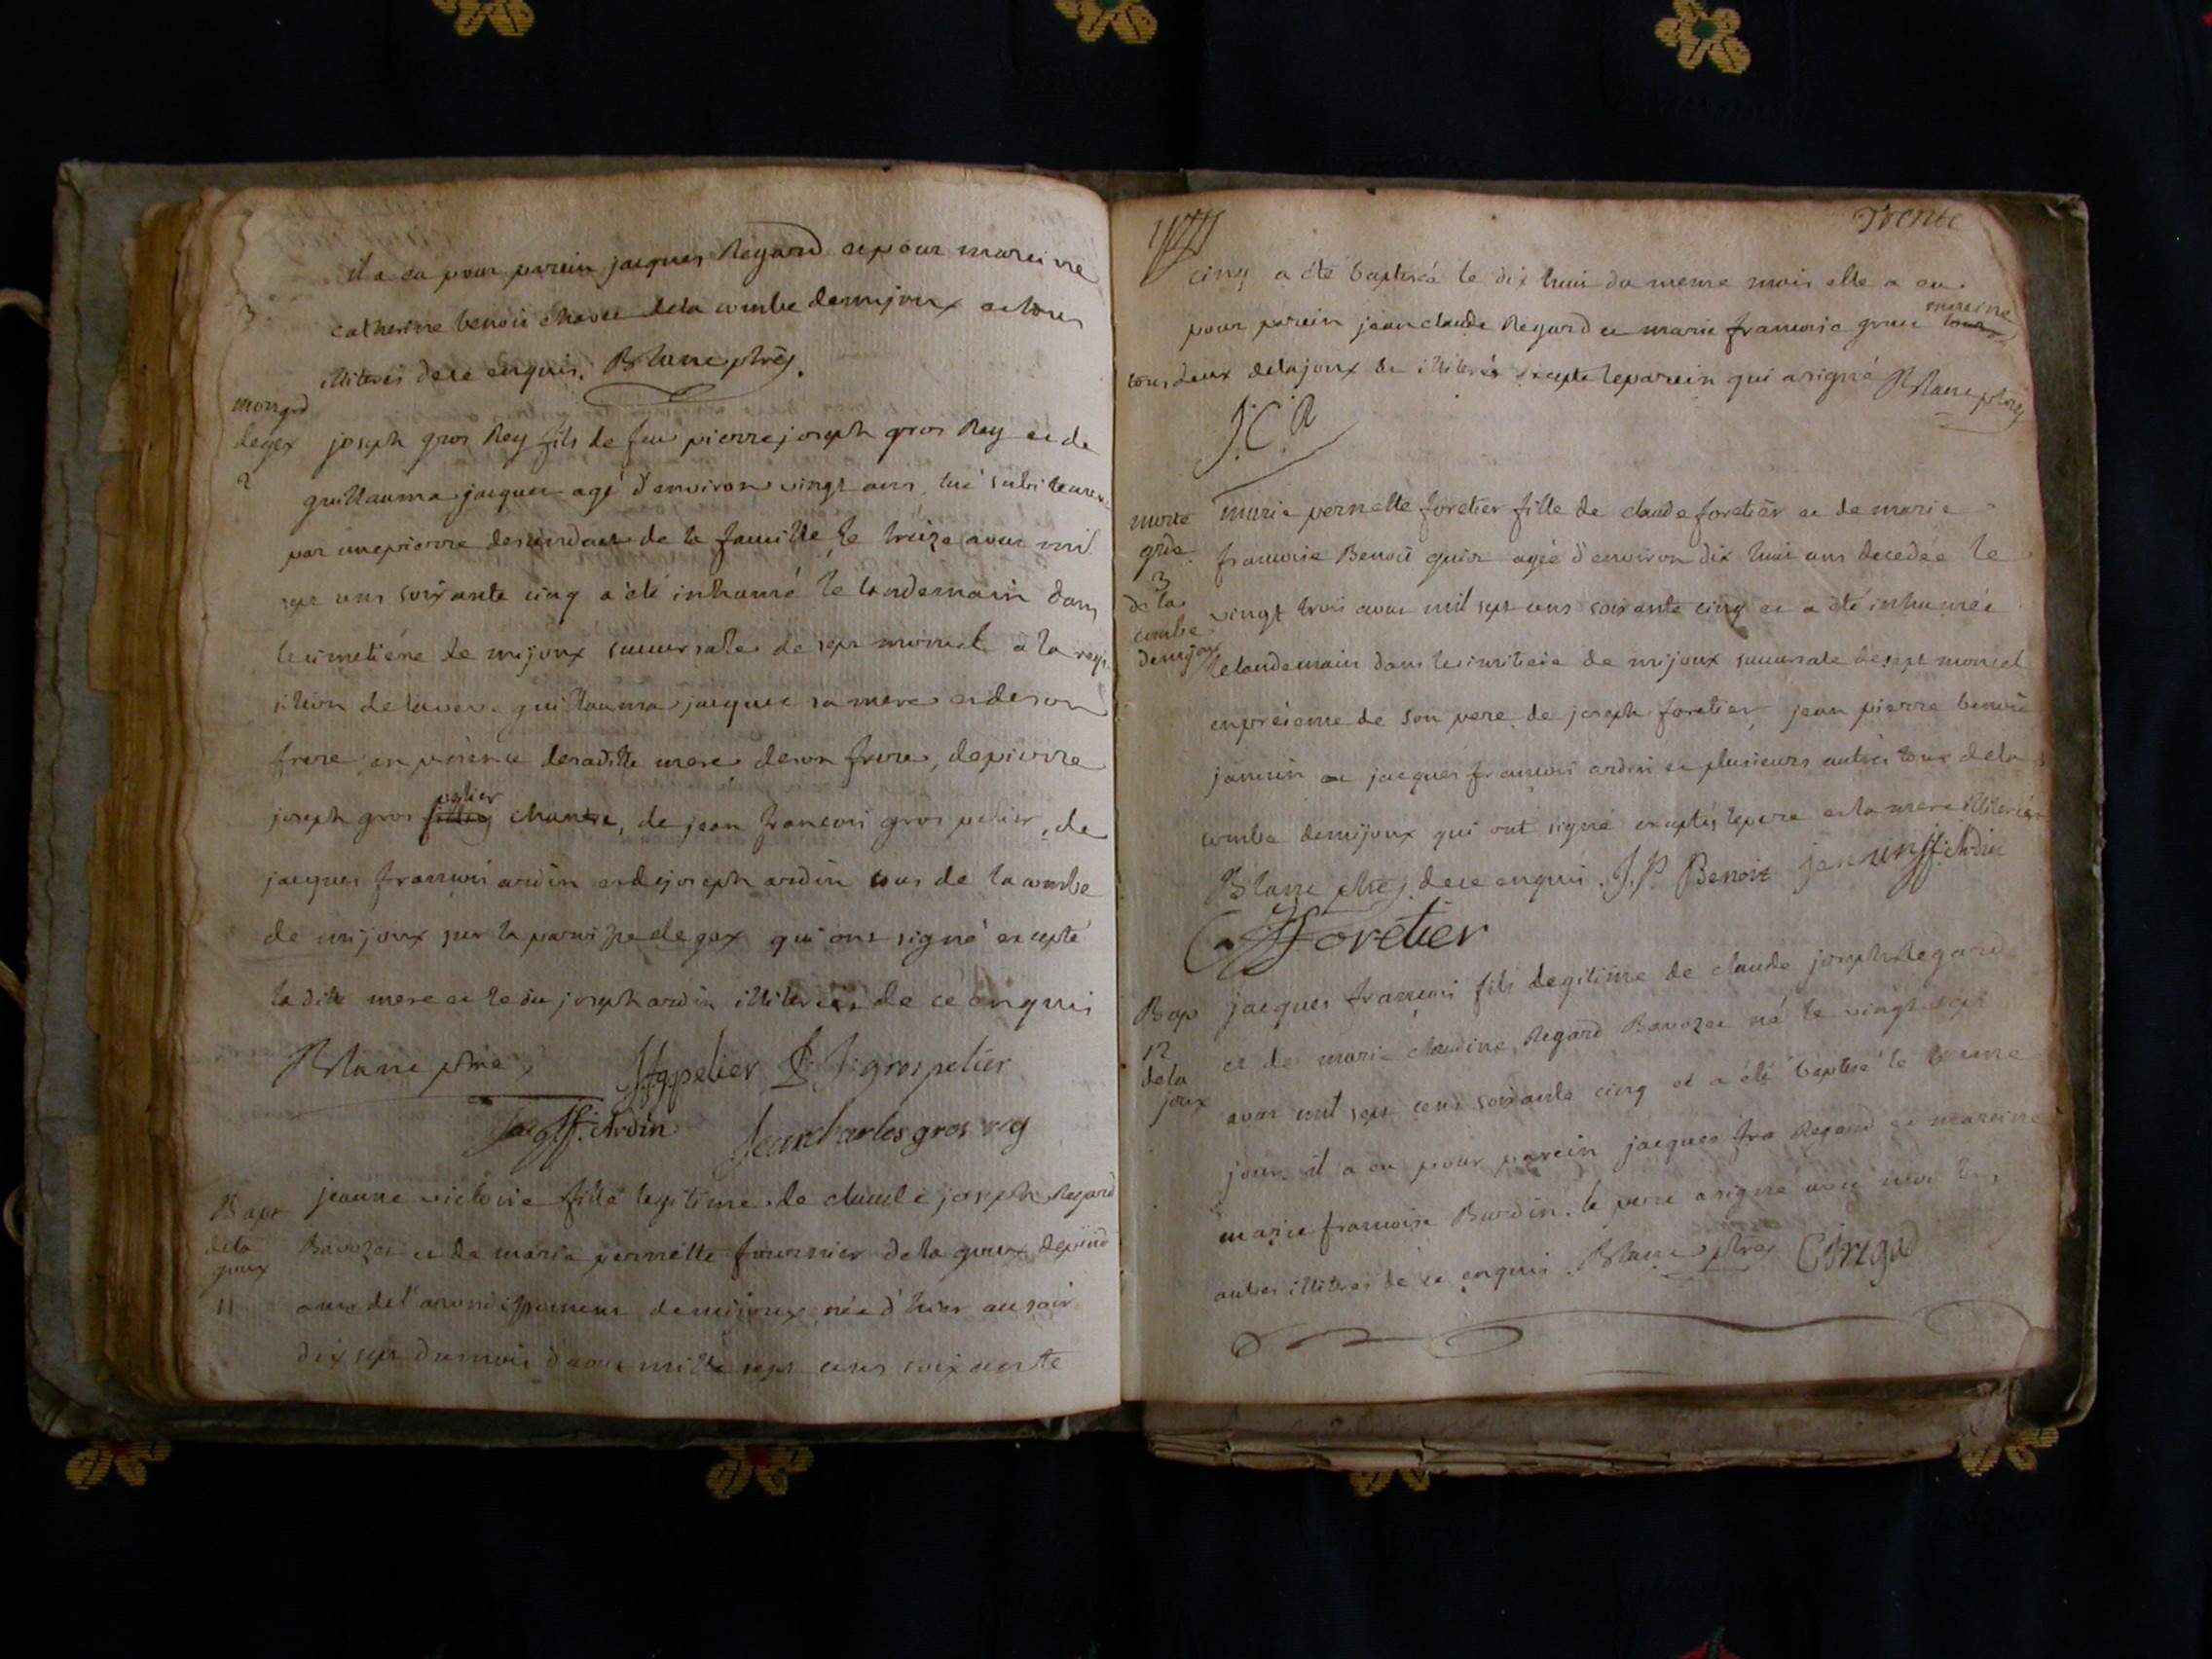 il a eu pour parein jacques Regard et pour mareine
3
catherine benoit chavee dela combe demijoux et tous
illiterés de ce enquis. Blanc ptre
mort gd
degex
2
joseph gros Rey fils de feu pierre joseph gros Rey et de
guillauma jacquet agé d'environ vingt ans, tué
par une pierre de la famille le treize aout mil
sept cens soixante cinq a été inhumé le landemain dans
le cimetiére de mijoux succursale de sept moncel a la requi
sition de guillauma jacquet sa mere et de son
frere en présence de sa ditte mere de son frere, de pierre
joseph gros pelier chantre, de jean francois gros pelier, de
jacques francois ardin et de joseph ardin tous de la combe
de mijoux sur la paroisse de gex qui ont signé excepté
la ditte mere et le dit joseph ardin illiterés de ce enquis
Blanc ptre J f g pelier P. J. gros pelier
Jac. ff. Ardin Jean charles gros rey
Bapt
dela
joux
11
jeanne victoire fille legitime de claude joseph Regard
Bavozet et de marie pernette fournier de la joux depend
ance de l'arondissement de mijoux née d'hier au soir
dix sept du mois d'aout mille sept cens soixante
Trente
cinq a été baptisée le dix huit du meme mois elle a eu
pour parein jean claude Regard et marie francoise grue mareine
tous deux dela joux de illiterés excepté le parein qui a signé Blanc ptre
J. C. R
morte
grde
3
de la
combe
demijoux
marie pernette foretier fille de claude foretier et de marie
francoise Benoit guiot agée d'environ dix huit ans decedée le
vingt trois aout mil sept cens soixante cinq et a été inhumée
le landemain dans le cimitiere de mijoux succursale de sept moncel
en présence de son pere de joseph foretier, jean pierre benoit
jannin et jacques francois ardin et plusieurs autres tous dela
combe demijoux qui ont signé exceptés le pere et la mere illiterés
Blanc ptre de ce enquis. J. P. Benoit jannin ff. Ardin
foretier
Bap
12
dela
joux
jacques francois fils legitime de claude joseph Regard
et de marie claudine Regard Bavozet né le vingt sept
aout mil sept cens soixante cinq et a été baptisé le meme
jour il a eu pour parein jacques fra Regard et mareine
marie francoise Burdin. le pere a signé avec moi les
autres illiterés de ce enquis. Blanc ptre CJ rigad